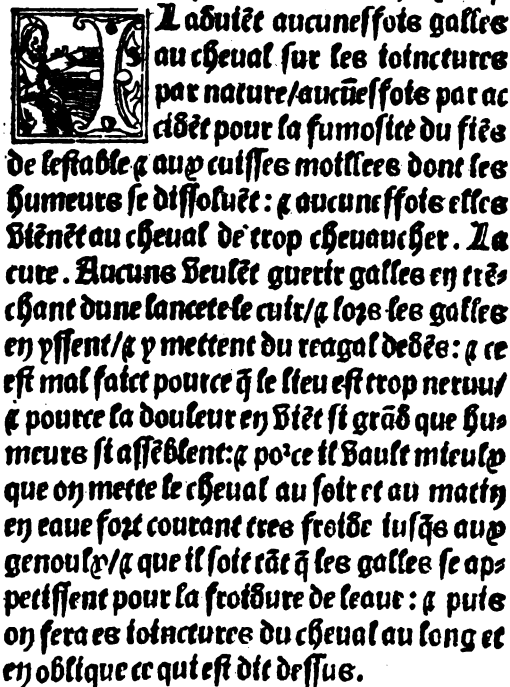 IL aduiẽt aucuneſſois galles
au cheual ſur les ioinctures
par nature/aucũeſſois par ac
cidẽt pour la fumoſite du fiẽs
de leſtable ⁊ aux cuiſſes moillees dont les
humeurs ſe diſſoluẽt: ⁊ aucuneffois elles
viẽnẽt au cheual de trop cheuaucher. La
cure. Aucuns veulẽt guerir galles en trẽ⸗
chant dune lancete le cuir/⁊ lors les galles
en yſſent/⁊ y mettent du reagal dedẽs: ⁊ ce
eſt mal faict pource q̃ le lieu eſt trop neruu/
⁊ pource la douleur en viẽt ſi grãd que hu⸗
meurs ſi aſſẽblent:⁊ po²ce il vault mieulx
que on mette le cheual au ſoir et au matin
en eaue fort courant tres froide iuſq̃s aux
genoulx/⁊ que il ſoit tãt q̃ les galles ſe ap⸗
petiſſent pour la froidure de leaue: ⁊ puis
on fera es ioinctures du cheual au long et
en oblique ce qui eſt dit deſſus.